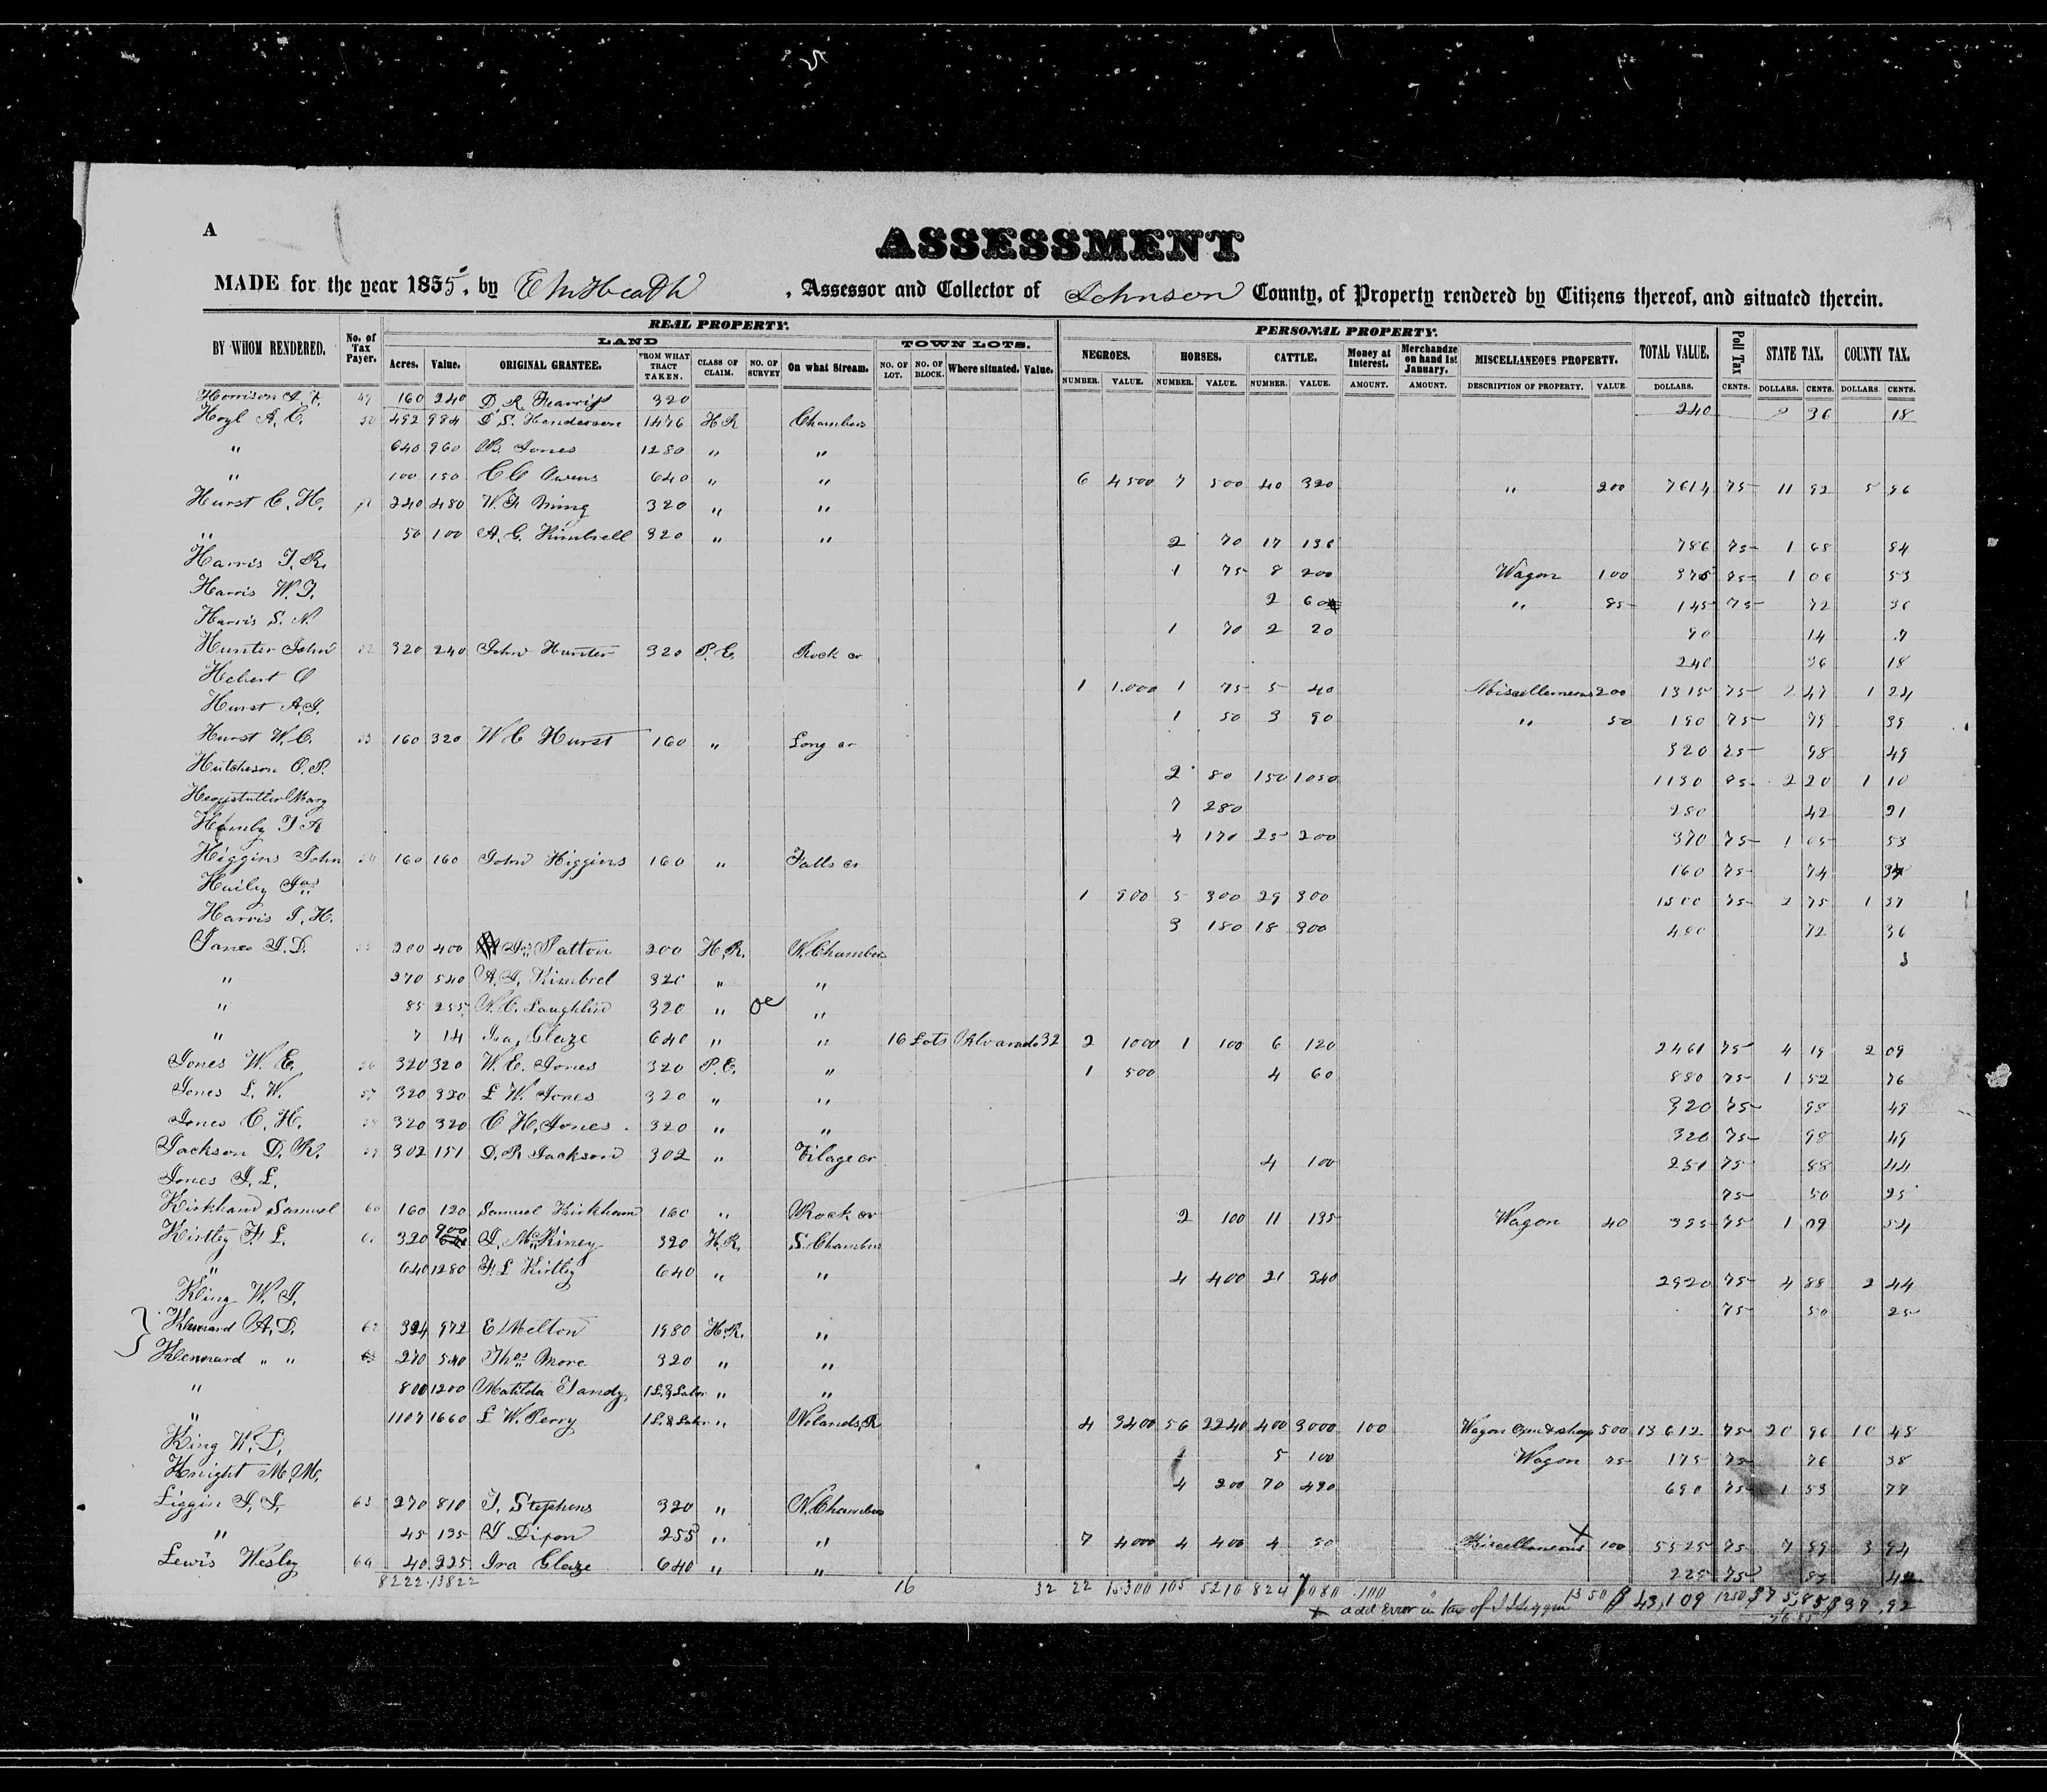 A
ASSESSMENT
MADE for the year 1855, by E M Heath, Assessor and Collector of Johnson County, of Property rendered by Citizens thereof, and situated therein.
REAL PROPERTY. PERSONAL PROPERTY.
LAND TOWN LOTS.
BY WHOM RENDERED. No. of Tax Payer. Acres. Value. ORIGINAL GRANTEE. FROM WHAT TRACT TAKEN. CLASS OF CLAIM. NO. OF SURVEY On what Stream. NO. OF LOT. NO. OF BLOCK. Where situated. Value. NEGROES. HORSES. CATTLE. Money at Interest. Merchandze on hand 1st January. MISCELLANEOUS PROPERTY. TOTAL VALUE. Poll Tax STATE TAX. COUNTY TAX.
NUMBER. VALUE. NUMBER. VALUE. NUMBER. VALUE. AMOUNT. AMOUNT. DESCRIPTION OF PROPERTY. VALUE. DOLLARS. CENTS. DOLLARS. CENTS. DOLLARS. CENTS.
Horrison 49 160 240 D. R. 320 240 36 18
Hoyl A. C. 50 492 984 D S. Henderson 1476 H R Chambers
" 640 960 B. Jones 1280 " "
" 100 150 C C Owens 640 " " 6 4500 7 500 40 320 " 200 7614 75 11 92 5 96
Hurst C. H. 240 480 W. F Ming 320 " "
" 50 100 A. G. Kimbrell 320 " " 2 70 17 136 786 75 1 68 84
Harris J. R. 1 75 8 200 Wagon 100 375 75 1 06 53
Harris W. J. 2 60 " 85 145 75 72 36
Harris S. N. 1 70 2 20 90 14 .7
Hunter John 52 320 240 John Hunter 320 P. E. Rock cr 240 36 18
Hebert O 1 1.000 1 75 5 40 Miscellaneous 200 1315 75 2 47 1 24
Hurst A. J. 1 50 3 90 " 50 190 75 79 39
Hurst W. C. 53 160 320 W C Hurst 160 " Long cr 320 75 98 49
Hutcheson O. P. 2 80 150 1050 1130 75 2 20 1 10
Mary 7 280 280 42 21
Hamby J A 4 170 25 200 370 75 1 05 53
Higgins John 54 160 160 John Higgins 160 " Falls cr 160 75 74 37
Hailey Jas 1 900 5 300 29 300 1500 75 2 75 1 37
Harris J. H. 3 180 18 300 480 72 36
Janes J. D. 55 200 400 Jas Patton 200 H. R. N. Chambers
" 270 540 A. J. Kimbrel 320 " "
" 85 255 N. C. Laughlin 320 " "
" 7 14 Ira Glaze 640 " " 16 Lots Alvarado 32 2 1000 1 100 6 120 2461 75 4 19 2 09
Jones W. E. 56 320 320 W. E. Jones 320 P. E. " 1 500 4 60 880 75 1 52 76
Jones L. W. 57 320 320 L W. Jones 320 " " 320 75 98 49
Jones C. H. 58 320 320 C. H. Jones 320 " " 320 75 98 49
Jackson D. R. 59 302 151 D. R Jackson 302 " Vilage cr 4 100 251 75 88 44
Jones J. L. 75 50 25
Kirkham Samuel 60 160 120 Samuel Kirkham 160 " Rock cr 2 100 11 135 Wagon 40 395 75 1 09 54
Kirtley F L. 61 320 900 J. McKiney 320 H. R. S. Chambers
" 640 1280 F. L Kirtley 640 " " 4 400 21 340 2920 75 4 88 2 44
King W. J. 75 50 25
Kennard A. D. 62 324 972 E Melton 1980 H. R. "
Kennard " " 270 540 Thos More 320 " "
" 800 1200 Matilda Tandy 1 L. & Labor " "
" 1107 1660 L W. Perry 1 L. & Labor " Nolands R 4 3400 56 2240 400 3000 100 Wagon Oxen & sheep 500 13612 75 20 96 10 48
King W. D. 5 100 Wagon 75 175 75 76 38
Knight M. M. 4 200 70 490 690 75 1 53 77
Liggin J. J. 63 270 810 J. Stephens 320 " N. Chambers
" 45 135 J Dixon 255 " " 7 4000 4 400 4 80 Miscellaneous X 100 5525 75 7 89 3 94
Lewis Wesley 64 40 225 Ira Glaze 640 " " 225 75 42
8222 13822 16 32 22 15300 105 5210 824 7080 100 1350 $43,109 1250 $75,85 $37,92
X add Error in tax of J J Liggin